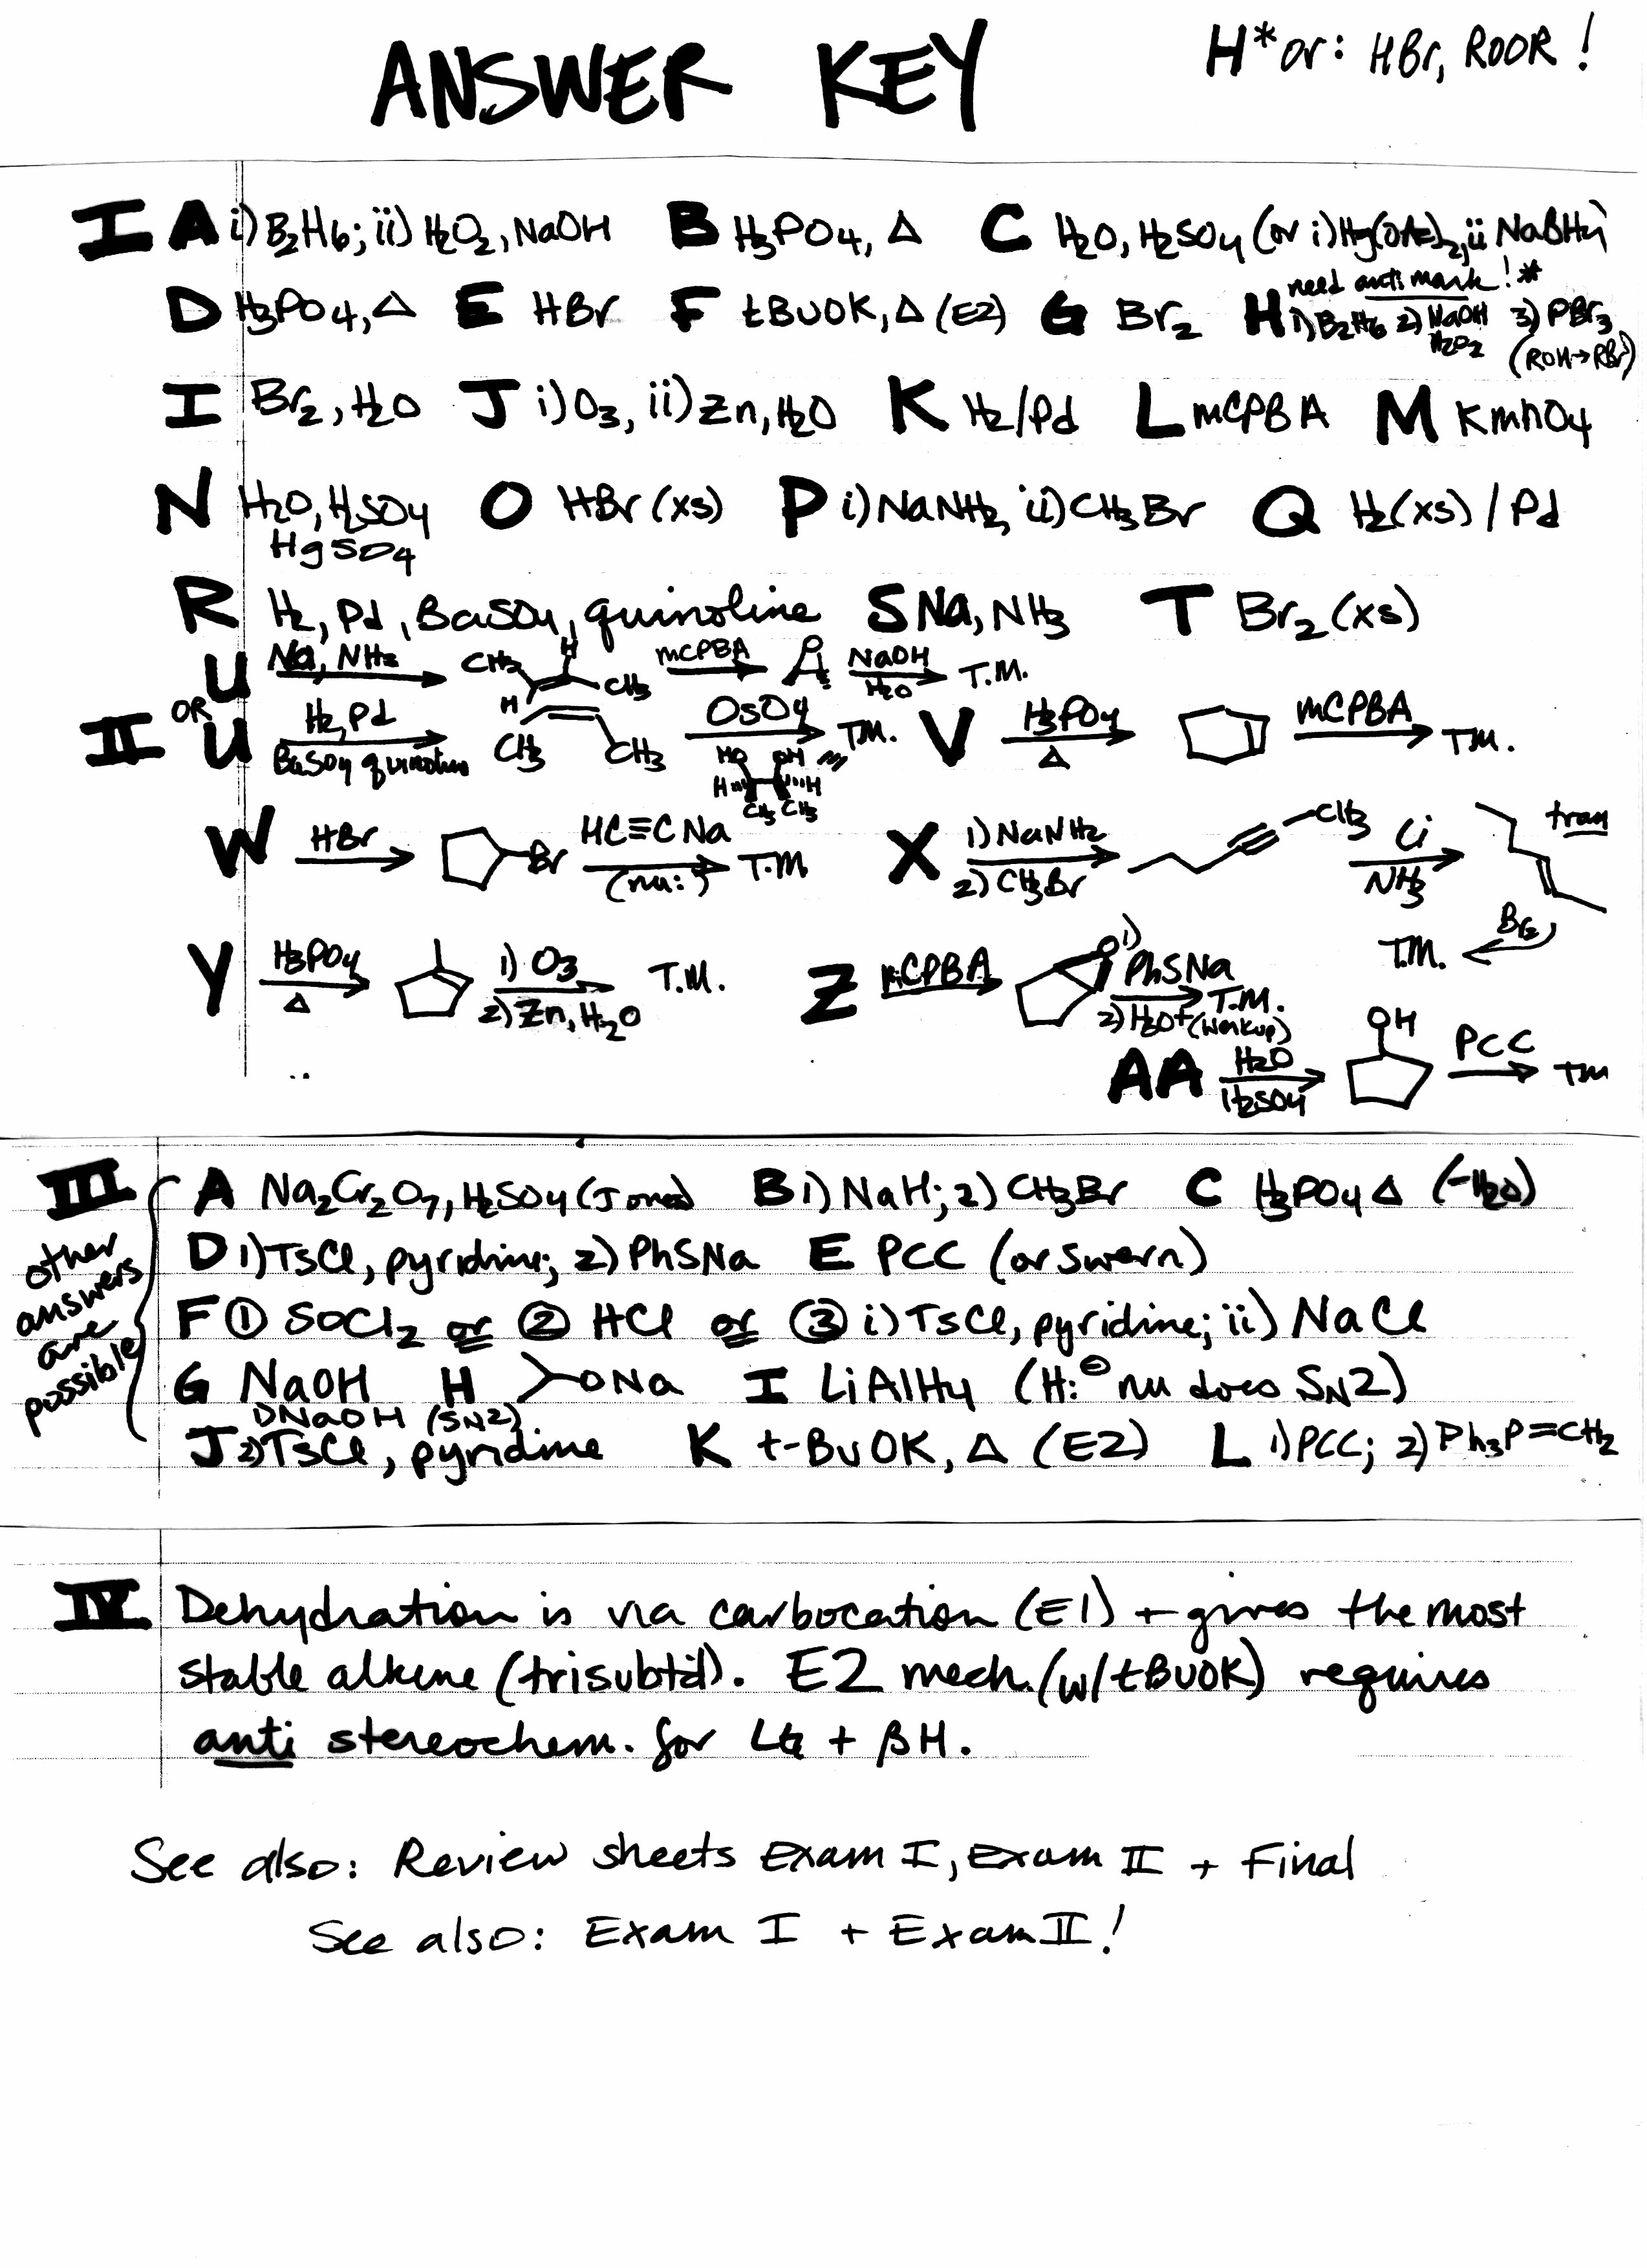 ANSWER KEY
H* or: HBr, ROOR!
I A i) B2H6; ii) H2O2, NaOH B H3PO4, Δ C H2O, H2SO4 (or i) Hg(OAc)2, ii NaBH4)
D H3PO4, Δ E HBr F tBuOK, Δ (E2) G Br2 H need anti mark!* 1) B2H6 2) NaOH H2O2 3) PBr3 (ROH→RBr)
I Br2, H2O J i) O3, ii) Zn, H2O K H2/Pd L mCPBA M KMnO4
N H2O, H2SO4 HgSO4 O HBr (xs) P i) NaNH2, ii) CH3Br Q H2(xs) / Pd
R H2, Pd, BaSO4, quinoline S Na, NH3 T Br2 (xs)
II U Na, NH3 CH3 H H CH3 mCPBA O NaOH H2O T.M.
OR U H2, Pd BaSO4 quinoline CH3 CH3 OsO4 T.M. HO OH H H CH3 CH3 V H3PO4 Δ mCPBA T.M.
W HBr Br HC≡CNa (nu:) T.M. X 1) NaNH2 2) CH3Br CH3 Li NH3 trans Br2 T.M.
Y H3PO4 Δ 1) O3 2) Zn, H2O T.M. Z mCPBA O 1) PhSNa 2) H3O+ (workup) T.M.
AA H2O H2SO4 OH PCC TM
III A Na2Cr2O7, H2SO4 (Jones) B 1) NaH; 2) CH3Br C H3PO4 Δ (-H2O)
other answers are possible
D 1) TsCl, pyridine; 2) PhSNa E PCC (or Swern)
F ① SOCl2 or ② HCl or ③ i) TsCl, pyridine; ii) NaCl
G NaOH H ONa I LiAlH4 (H:⊖ nu does SN2)
J 1) NaOH (SN2) 2) TsCl, pyridine K t-BuOK, Δ (E2) L 1) PCC; 2) Ph3P=CH2
IV Dehydration is via carbocation (E1) + gives the most
stable alkene (trisubt'd). E2 mech. (w/tBuOK) requires
anti stereochem. for LG + βH.
See also: Review sheets Exam I, Exam II + Final
See also: Exam I + Exam II!